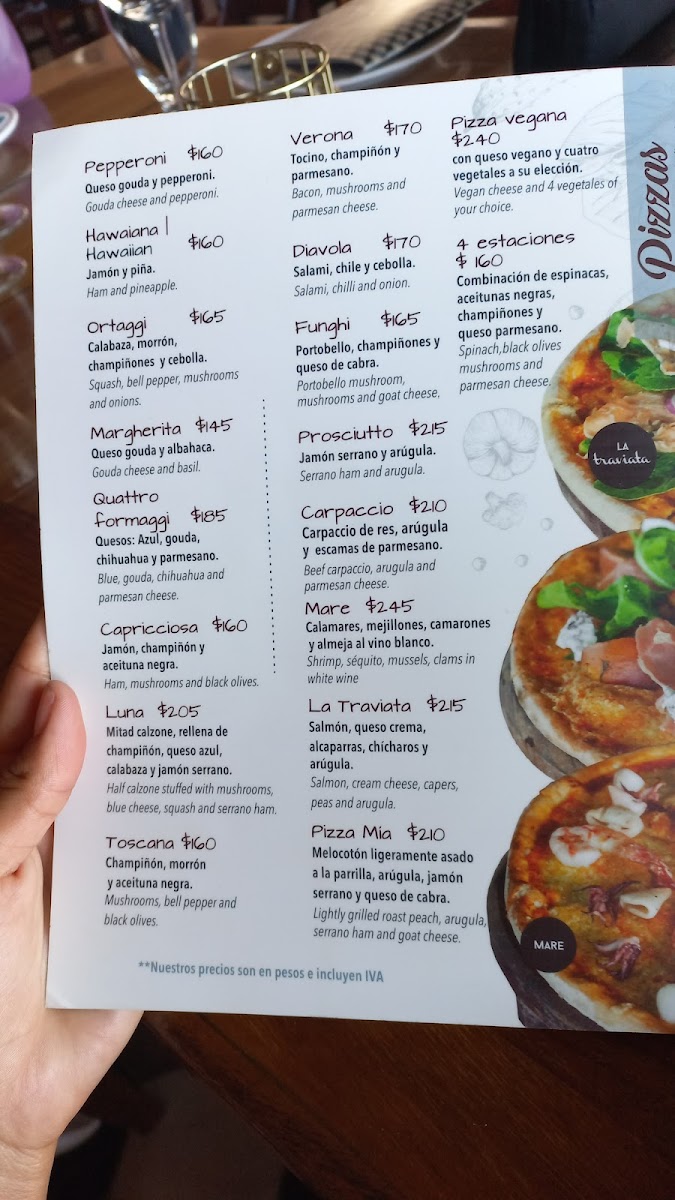 Pepperoni $160
Queso gouda y pepperoni.
Gouda cheese and pepperoni.
Hawaiana |
Hawaiian $160
Jamón y piña.
Ham and pineapple.
Ortaggi $165
Calabaza, morrón,
champiñones y cebolla.
Squash, bell pepper, mushrooms
and onions.
Margherita $145
Queso gouda y albahaca.
Gouda cheese and basil.
Quattro
formaggi $185
Quesos: Azul, gouda,
chihuahua y parmesano.
Blue, gouda, chihuahua and
parmesan cheese.
Capricciosa $160
Jamón, champiñón y
aceituna negra.
Ham, mushrooms and black olives.
Luna $205
Mitad calzone, rellena de
champiñón, queso azul,
calabaza y jamón serrano.
Half calzone stuffed with mushrooms,
blue cheese, squash and serrano ham.
Toscana $160
Champiñón, morrón
y aceituna negra.
Mushrooms, bell pepper and
black olives.
Verona $170
Tocino, champiñón y
parmesano.
Bacon, mushrooms and
parmesan cheese.
Diavola $170
Salami, chile y cebolla.
Salami, chilli and onion.
Funghi $165
Portobello, champiñones y
queso de cabra.
Portobello mushroom,
mushrooms and goat cheese.
Prosciutto $215
Jamón serrano y arúgula.
Serrano ham and arugula.
Carpaccio $210
Carpaccio de res, arúgula
y escamas de parmesano.
Beef carpaccio, arugula and
parmesan cheese.
Mare $245
Calamares, mejillones, camarones
y almeja al vino blanco.
Shrimp, séquito, mussels, clams in
white wine
La Traviata $215
Salmón, queso crema,
alcaparras, chícharos y
arúgula.
Salmon, cream cheese, capers,
peas and arugula.
Pizza Mia $210
Melocotón ligeramente asado
a la parrilla, arúgula, jamón
serrano y queso de cabra.
Lightly grilled roast peach, arugula,
serrano ham and goat cheese.
Pizza vegana
$240
con queso vegano y cuatro
vegetales a su elección.
Vegan cheese and 4 vegetales of
your choice.
4 estaciones
$ 160
Combinación de espinacas,
aceitunas negras,
champiñones y
queso parmesano.
Spinach,black olives
mushrooms and
parmesan cheese.
Pizzas
LA
traviata
MARE
**Nuestros precios son en pesos e incluyen IVA